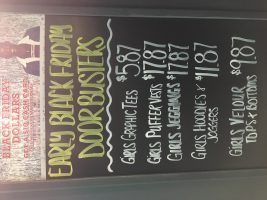 BLACK FRIDAY
DOLLARS
EARLY BLACK FRIDAY
DOORBUSTERS
$5.87
GIRLS GRAPHIC TEES
$17.87
GIRLS PUFFER VESTS
$17.87
GIRLS JEGGINGS
$11.87
GIRLS HOODIES &
JOGGERS
$9.87
GIRLS VELOUR
TOPS & BOTTOMS